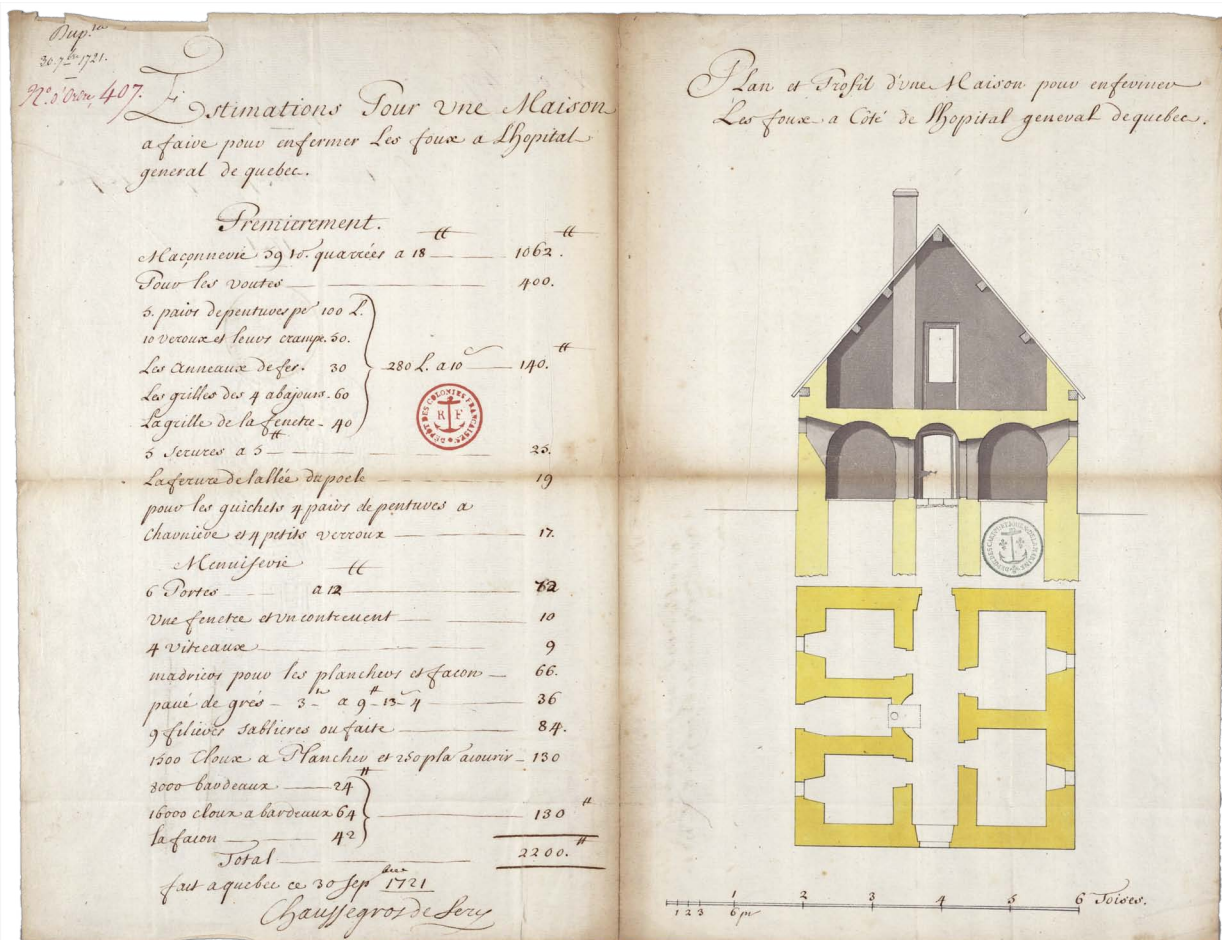 Dup.ta
30. 7.bre 1721.
N.o d'Ordre, 407.
Estimations Pour Une Maison
a faire pour enfermer Les foux a Lhopital
general de quebec.
Premierement.
Maçonnerie 59 to. quarrées a 18 tt 1062. tt
Pour les voutes 400.
5. pairs de pentures pe 100 L.
10 veroux et leurs crampe. 50.
Les anneaux de fer. 30
280 L. a 10 140. tt
Les grilles des 4 abajours. 60
La grille de la fenetre 40
5 Serures a 5 tt 25.
La ferure de lallée du poele 19
pour les guichets 4 pairs de pentures a
charniere et 4 petits verroux 17.
Menuiserie
6 Portes a 12 tt 72
Une fenetre et un contrevent 10
4 vitreaux 9
madriers pour les planchers et facon 66.
pavé de grés 3 to a 9 tt 13 4 36
9 filieres Sablieres ou faite 84.
1500 Cloux a Plancher et 250 pla acouvrir 130
8000 bardeaux 24 tt
16000 cloux a bardeaux 64 130 tt
la facon 42
Total 2200. tt
fait a quebec ce 30 Sep bre 1721
Chaussegros de Lery
DEPOT DES COLONIES FRANÇAISES
R F
Plan et Profil d'une Maison pour enfermer
Les foux a Côté de Lhopital general de quebec.
1 2 3 6 pi 1 2 3 4 5 6 Toises.